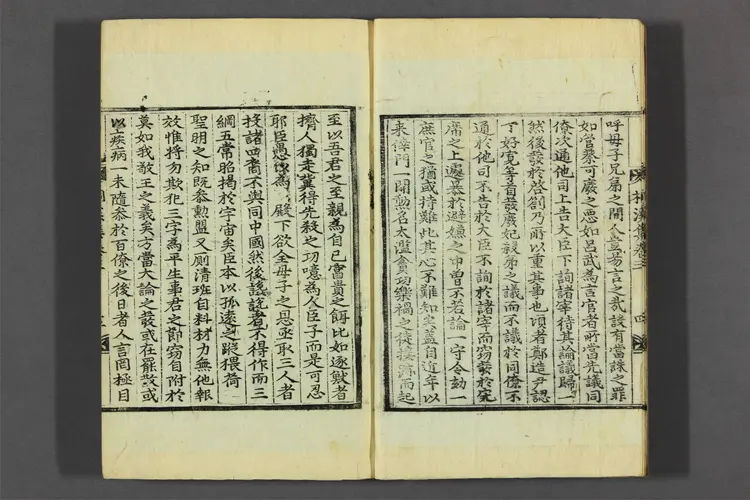 呼母子兄弟之間人豈易言之哉設有當誅之罪
如管蔡可廢之惡如呂武為言官者所當先議同
僚次通他司上告大臣下詢諸宰待其論議歸一
然後發於啓劄乃所以重其事也頃者鄭造尹認
丁好寬等首發廢妃殺弟之議而不議於同僚不
通於他司不告於大臣不詢於諸宰而窃發於完
席之上遽暴於避嫌之中曾不若論一守令劾一
庶官之猶或持難此其心不難知矣盖自近年以
來倖門一開勳名太濫貪功樂禍之徒接踵而起
至以吾君之至親為自己富貴之餌比如逐獸者
擠人獨走冀得先殺之功噫為人臣子而是可忍
耶臣愚以為 殿下欲全母子之恩亟取三人者
投諸四裔不與同中國然後者不得作而三
綱五常昭揭於宇宙矣臣本以孤遠之蹤猥荷
聖明之知既忝勲盟又厠清班自料材力無他報
效惟将勿欺犯三字為平生事君之節窃自附於
莫如我敬王之義矣方當大論之發或在罷散或
以疾病一未隨參於百僚之後日者人言罔極目